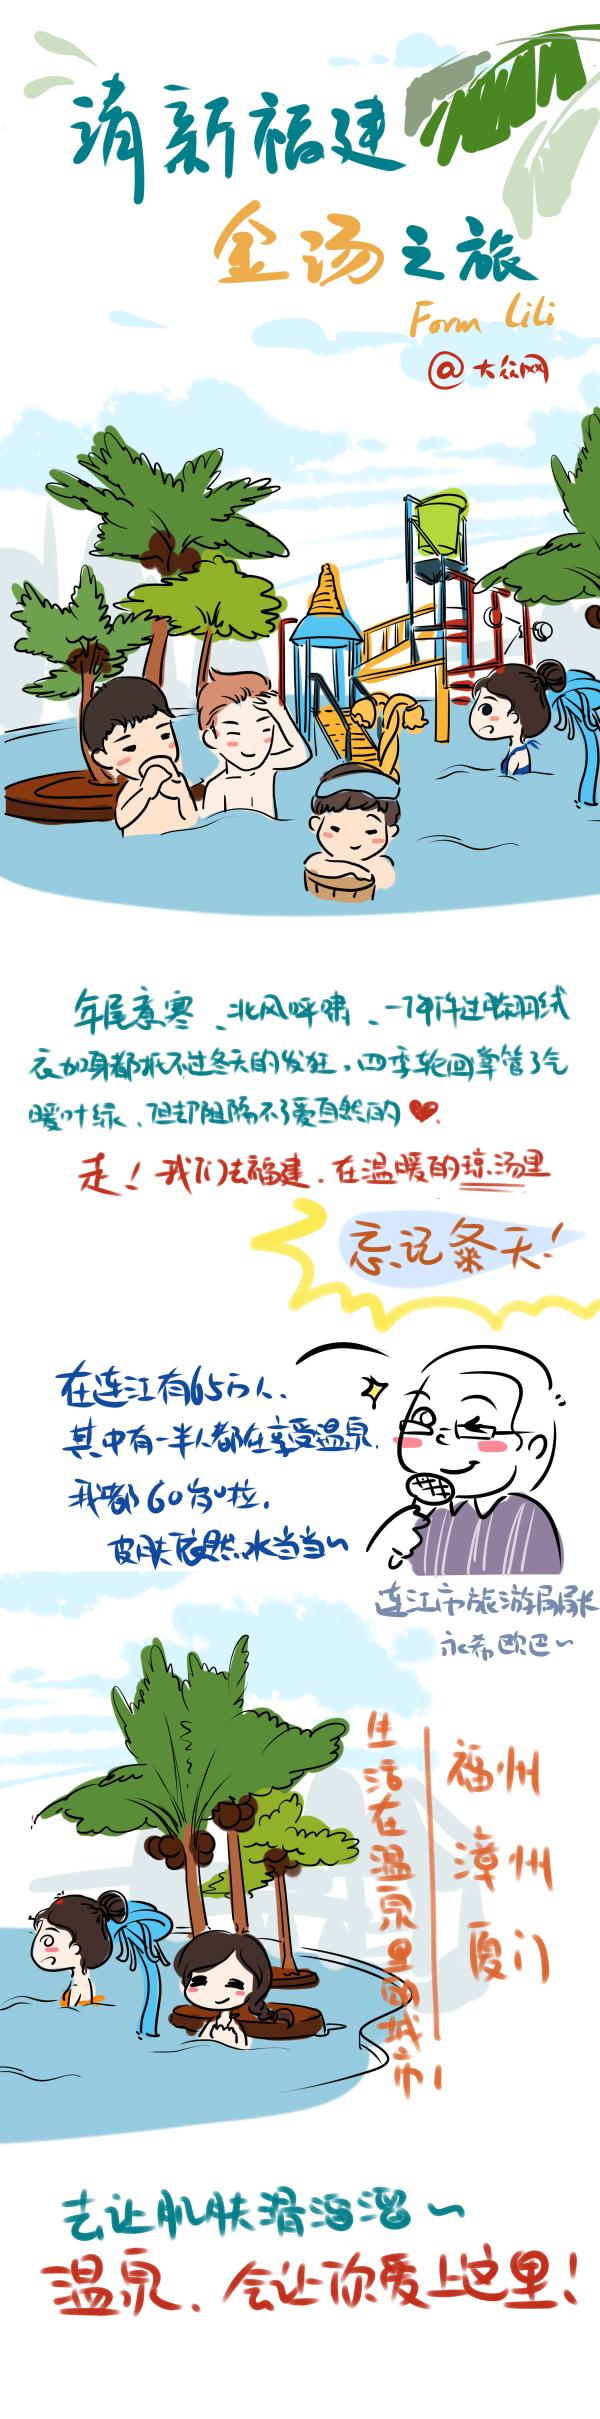 清新福建
金汤之旅
Form Lili
@大众网
年尾意寒、北风呼啸、一件件过膝羽绒
衣加身都抵不过冬天的发狂,四季轮回掌管了气
暖叶绿、但却阻隔不了爱自然的❤.
走!我们去福建、在温暖的琼汤里
忘记冬天!
在连江有65万人、
其中有一半人都在享受温泉,
我都60岁啦,
皮肤依然水当当~
连江市旅游局局长
永希欧巴~
生活在温泉里的城市!
福州
漳州
厦门
去让肌肤滑溜溜~
温泉、会让你爱上这里!